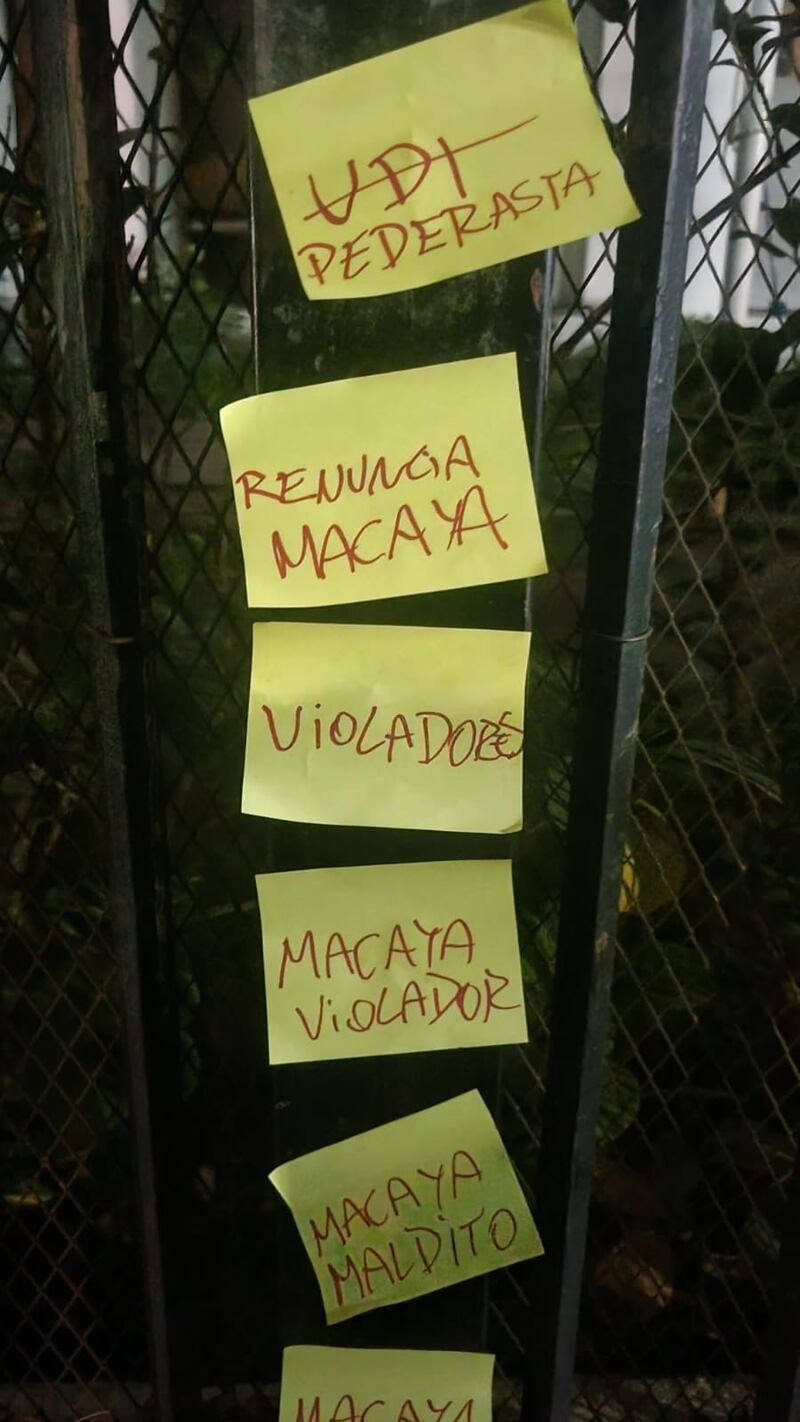 UDI
PEDERASTA
RENUNCIA
MACAYA
VIOLADORES
MACAYA
VIOLADOR
MACAYA
MALDITO
MACAYA